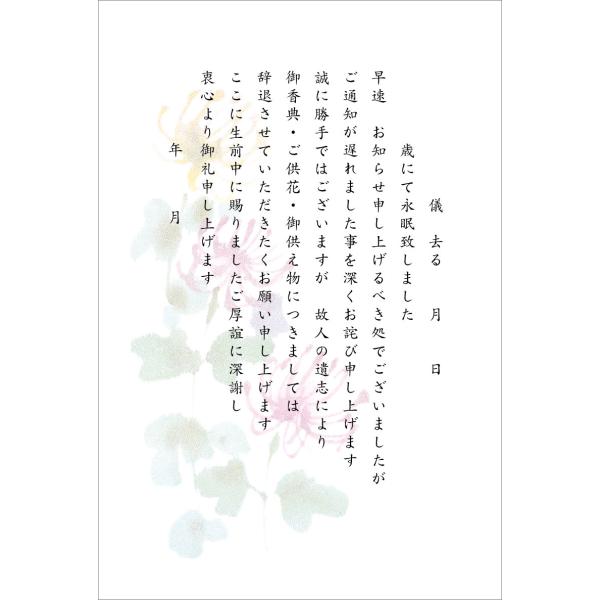 儀 去る 月 日
歳にて永眠致しました
早速 お知らせ申し上げるべき処でございましたが
ご通知が遅れました事を深くお詫び申し上げます
誠に勝手ではございますが 故人の遺志により
御香典・ご供花・御供え物につきましては
辞退させていただきたくお願い申し上げます
ここに生前中に賜りましたご厚誼に深謝し
衷心より御礼申し上げます
年 月